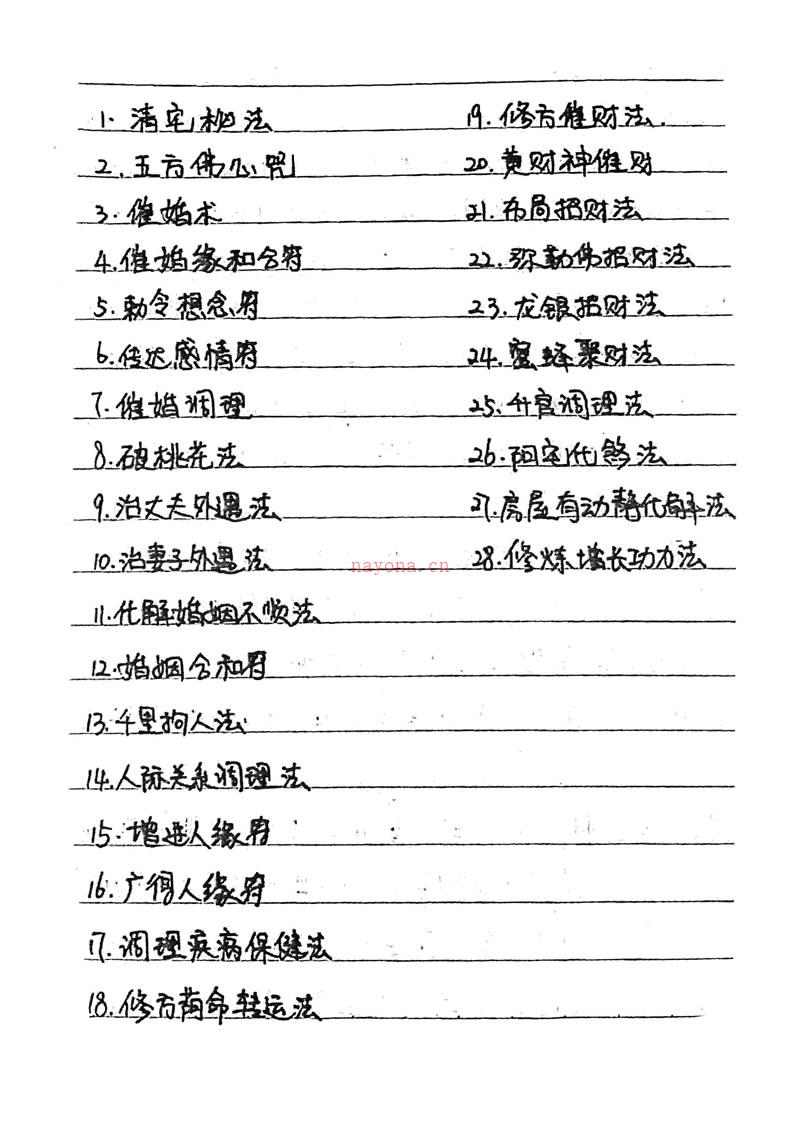 1. 清宅秘法
2. 五方佛心咒
3. 催婚术
4. 催婚缘和合符
5. 勅令想念符
6. 传达感情符
7. 催婚调理
8. 破桃花法
9. 治丈夫外遇法
10. 治妻子外遇法
11. 化解婚姻不顺法
12. 婚姻合和符
13. 千里拘人法
14. 人际关系调理法
15. 增进人缘符
16. 广得人缘符
17. 调理疾病保健法
18. 修方荫命转运法
19. 修方催财法.
20. 黄财神催财
21. 布局招财法
22. 弥勒佛招财法
23. 龙银招财法
24. 蜜蜂聚财法
25. 升官调理法
26. 阳宅化煞法
27. 房屋有动静化解法
28. 修炼增长功力法
nayona.cn